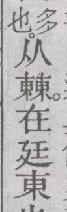 多
也。
从㯥。在廷東